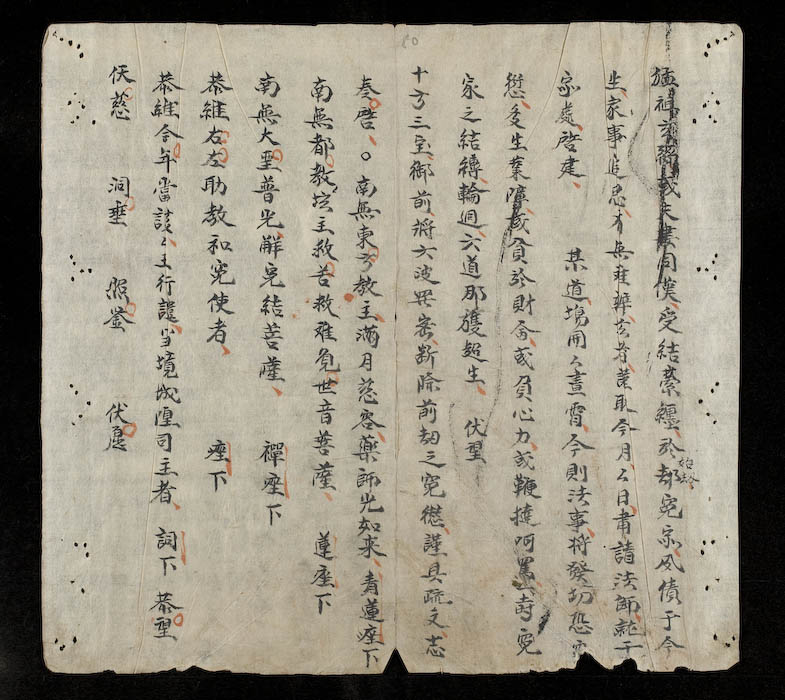 受結縈纏於 都冤宗夙債于今
生家事追患有無碓辨玄考葉取今月厶日肅請法師就于
家處啓建 某道塲用厶晝霄今則法事將發切恐
愆多生業障或負於財命或負心力或鞭撻呵罵壽冤
家之結縛輪迴六道那獲超生 伏望
十方三宝御前將六波罗宻断除前刼之冤愆謹具疏文志
奏啓 南無東方教主滿月慈容藥師光如来 青蓮座下
南無都教坛主救苦救难𮗚世音菩薩 蓮座下
南無大聖普光觧冤結菩薩 禪座下
恭維右左助教和冤使者 座下
恭維合年當該厶王行譴当境城隍司主者 詞下 恭望
伏慈 洞垂 照鉴 伏愿